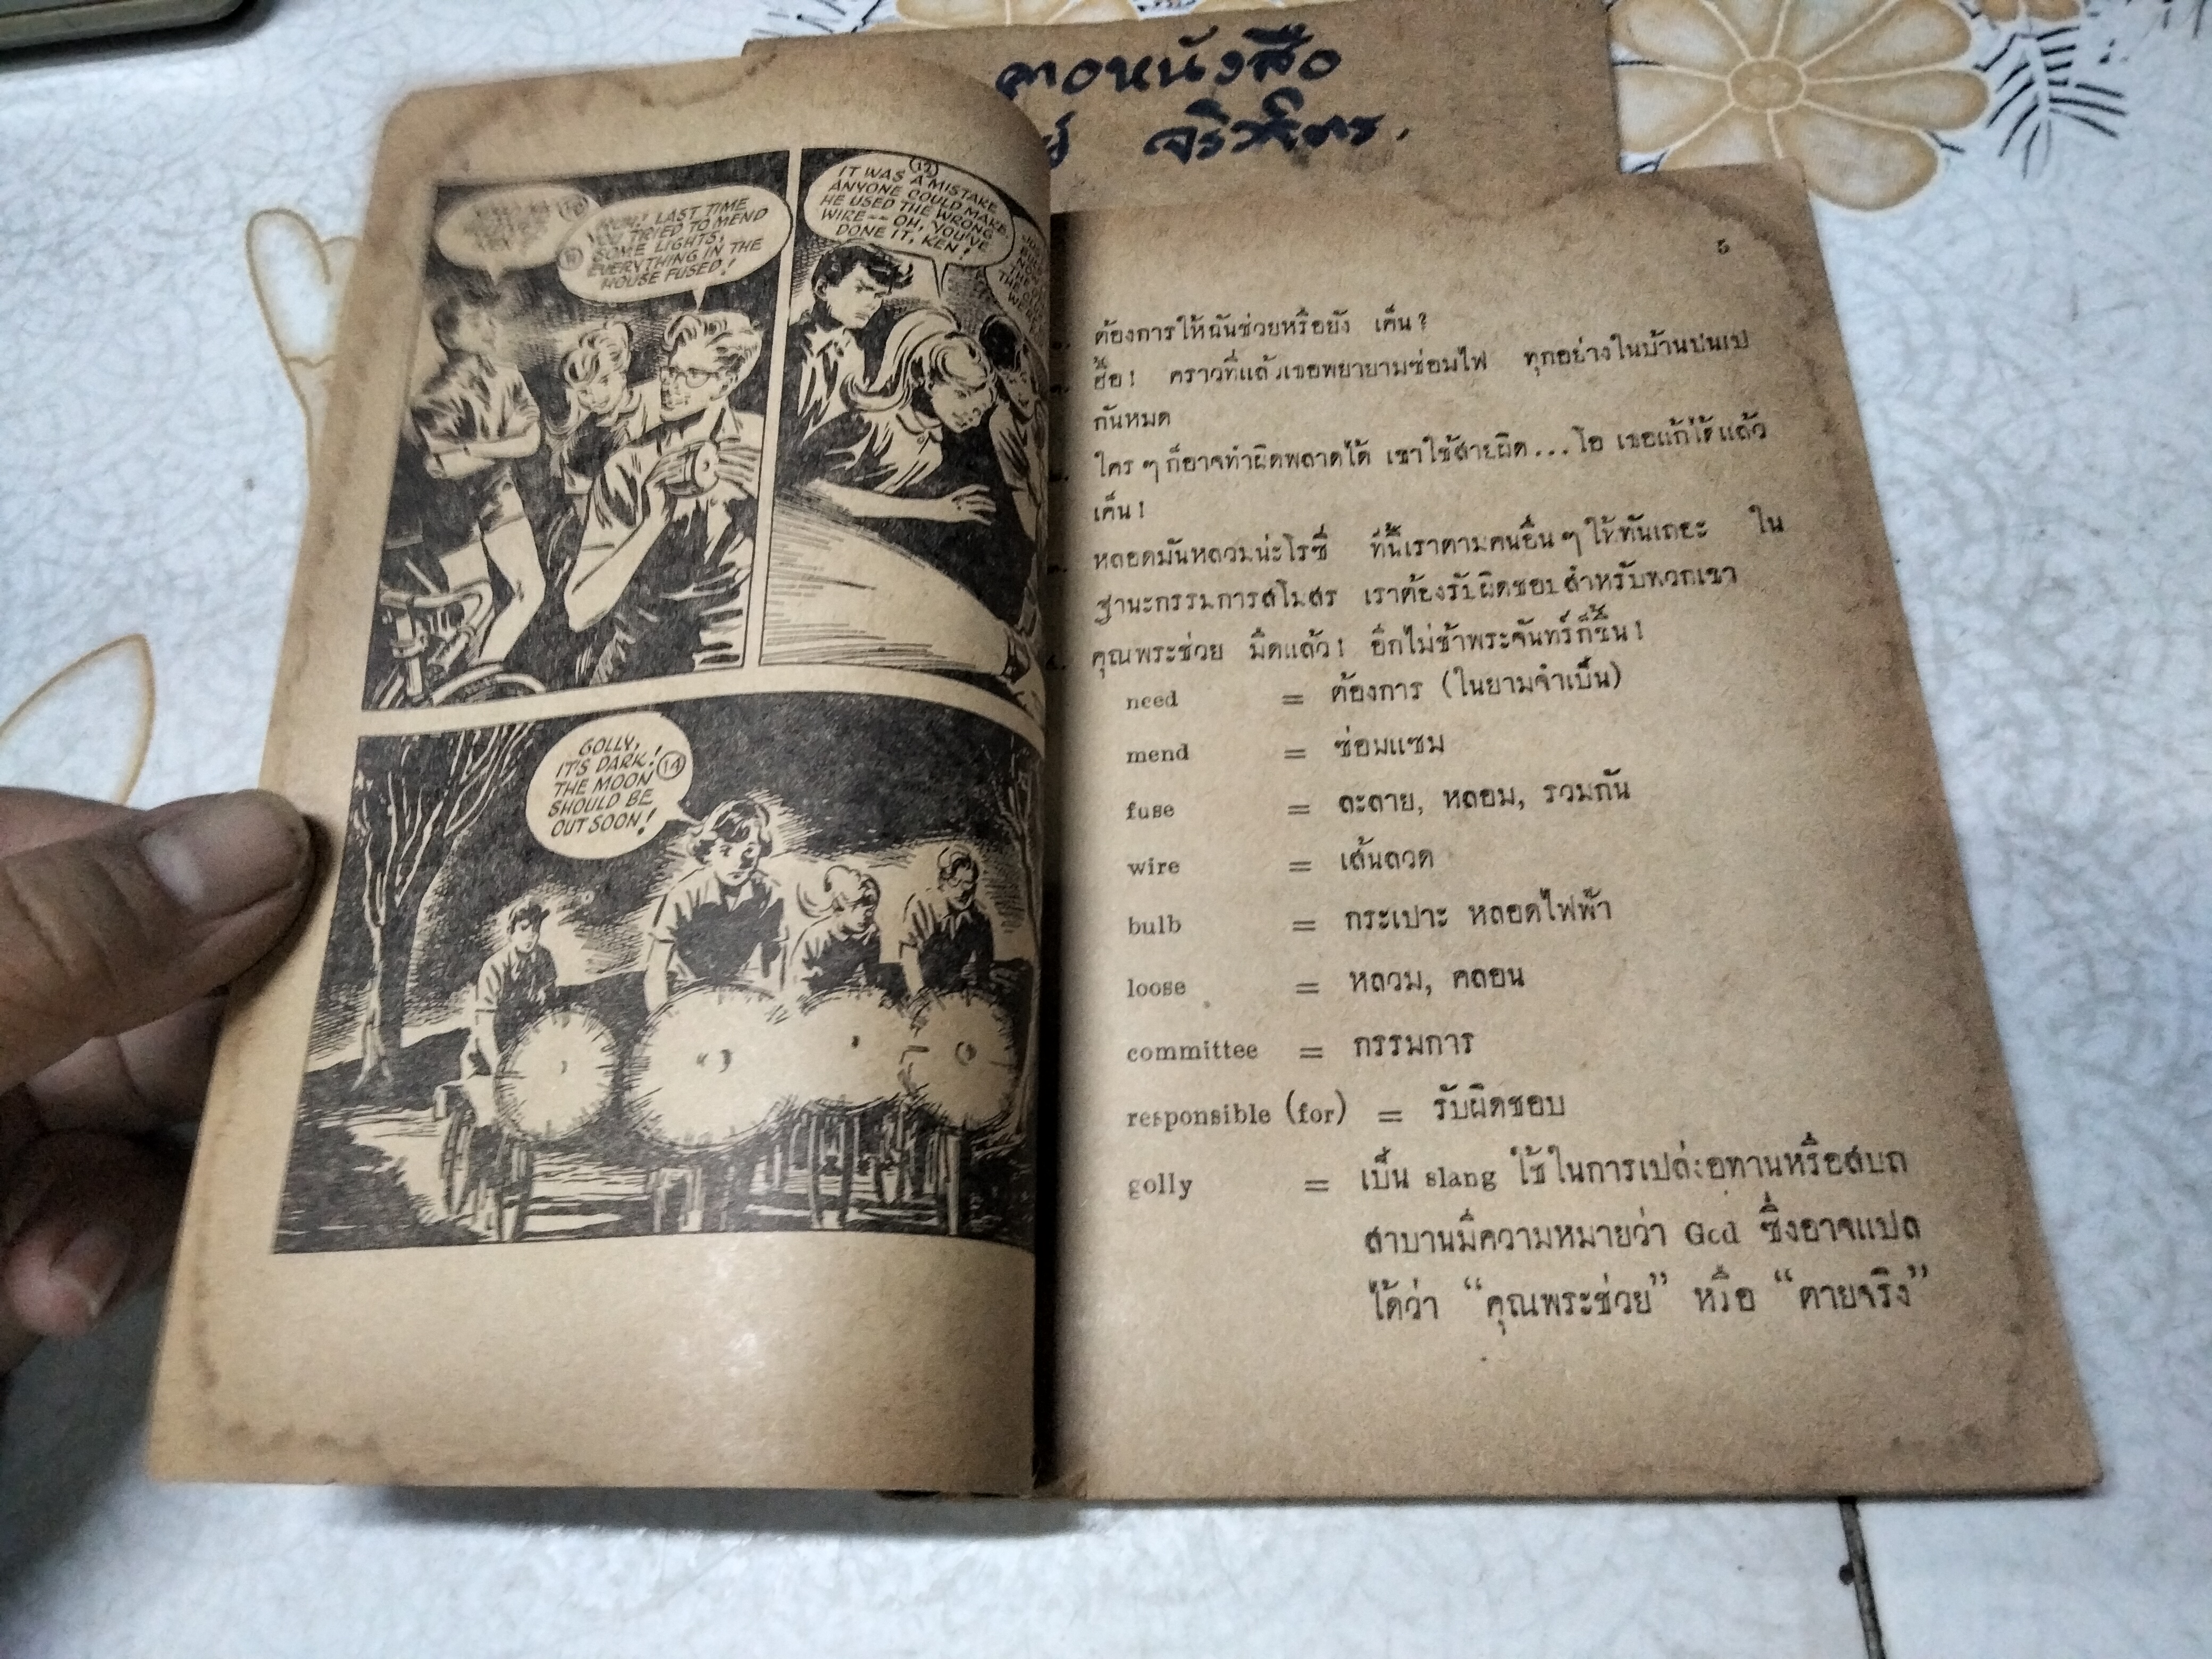 คอหนังสือ
LAST TIME
TRIED TO MEND
SOME LIGHTS,
EVERYTHING IN THE
HOUSE FUSED!
12
IT WAS A MISTAKE
ANYONE COULD MAKE.
HE USED THE WRONG
WIRE-- OH, YOU'VE
DONE IT, KEN!
GOLLY,
IT'S DARK! 14
THE MOON
SHOULD BE
OUT SOON!
5
ต้องการให้ฉันช่วยหรือยัง เค็น?
ฮื้อ! คราวที่แล้วเธอพยายามซ่อมไฟ ทุกอย่างในบ้านปนเป
กันหมด
ใคร ๆ ก็อาจทำผิดพลาดได้ เขาใช้สายผิด...โอ เธอแก้ได้แล้ว
เค็น!
หลอดมันหลวมน่ะโรซี่ ทีนี้เราตามคนอื่น ๆ ให้ทันเถอะ ใน
ฐานะกรรมการสโมสร เราต้องรับผิดชอบสำหรับพวกเขา
คุณพระช่วย มืดแล้ว! อีกไม่ช้าพระจันทร์ก็ขึ้น!
need = ต้องการ (ในยามจำเป็น)
mend = ซ่อมแซม
fuse = ละลาย, หลอม, รวมกัน
wire = เส้นลวด
bulb = กระเปาะ หลอดไฟฟ้า
loose = หลวม, คลอน
committee = กรรมการ
responsible (for) = รับผิดชอบ
golly = เป็น slang ใช้ในการเปล่งอุทานหรือสบถ
สาบานมีความหมายว่า God ซึ่งอาจแปล
ได้ว่า “คุณพระช่วย” หรือ “ตายจริง”